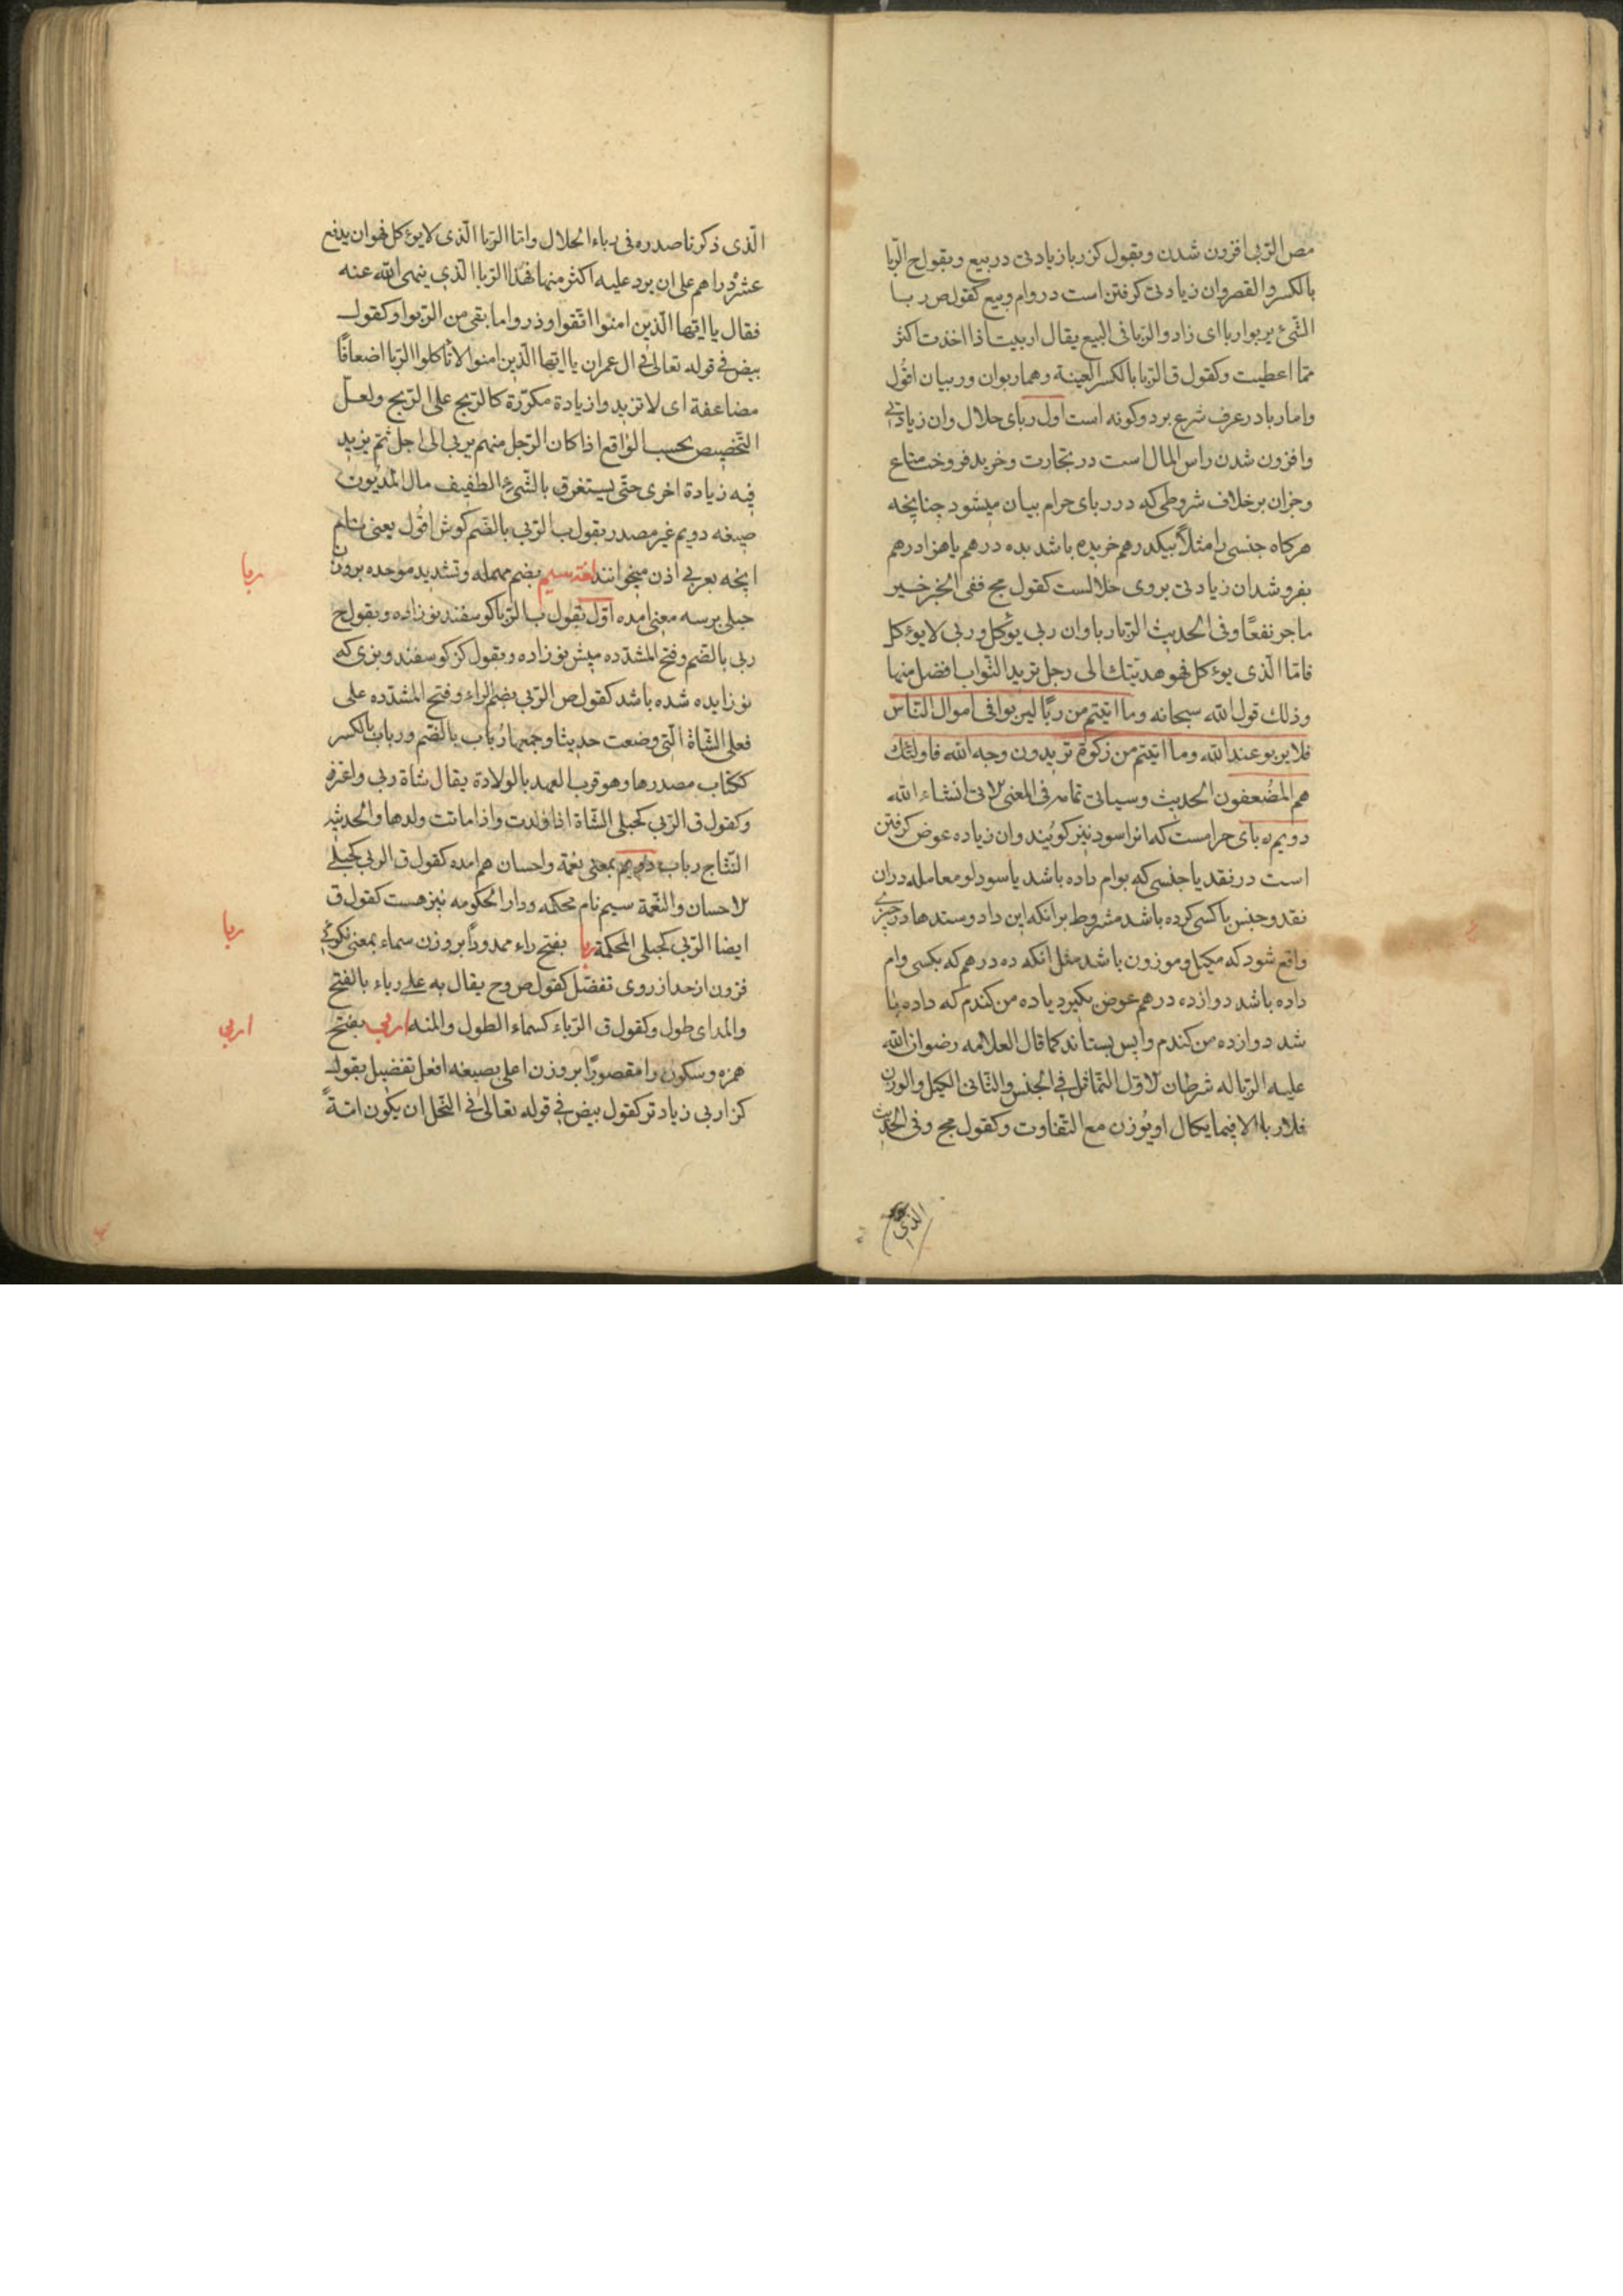 مص الربی افزون شدن وبقول کز ربا زیادتی در بیع وبقول ح الربا
بالکسر والقصر وان زیادتی کرفتن است در وام وبیع کقول ص ربا
الشئ یربوا ربا ای زاد والربا فی البیع یقال اربیت اذا اخذت اکثر
مما اعطیت وکقول ق الربا بالکسر العینة وهما ربوان وربیان اقول
واما ربا در عرف شرع بر دو کونه است اول ربای حلال وان زیادتی
وافزون شدن راس المال است در تجارت وخرید فروخت متاع
وجزان برخلاف شروطی که در ربای حرام بیان میشود چنانچه
هرکاه جنسی را مثلاً بیکدرهم خریده باشد بده درهم یا هزار درهم
بفروشد ان زیادتی بروی حلالست کقول مج ففی الخبر خیر
ما جر نفعًا وفی الحدیث الربا ربا وان ربی یؤکل وربی لا یؤکل
فاما الذی یؤکل فهو هدیتك الی رجل ترید الثواب افضل منها
وذلك قول الله سبحانه وما اتیتم من ربًا لیربوا فی اموال الناس
فلا یربو عند الله وما اتیتم من زکوة تریدون وجه الله فاولئك
هم المضعفون الحدیث وسیاتی تمامه فی المعنی الاتی انشاء الله
دویم ربای حرامست که انرا سود نیز کویند وان زیاده عوض کرفتن
است در نقد یا جنسی که بوام داده باشد یا سودا ومعامله دران
نقد وجنس با کسی کرده باشد مشروط برانکه این داد وستدها در چیزی
واقع شود که مکیل وموزون باشد مثل انکه ده درهم که بکسی وام
داده باشد دوازده درهم عوض بکیرد یا ده من کندم که داده با
شد دوازده من کندم واپس بستاند کما قال العلامه رضوان الله
علیه الربا له شرطان الاول التماثل فی الجنس والثانی الکیل والوزن
فلا ربا الا فیما یکال او یوزن مع التفاوت وکقول مج وفی الحدیث
الذی
الذی ذکرنا صدره فی رباء الحلال واما الربا الذی لا یؤکل فهو ان یدفع
عشر دراهم علی ان یرد علیه اکثر منها فهذا الربا الذی ینهی الله عنه
فقال یا ایها الذین امنوا اتقوا وذروا ما بقی من الربوا وکقول
بیض فی قوله تعالی فی ال عمران یا ایها الذین امنوا لا تاکلوا الربا اضعافًا
مضاعفة ای لا تزیدوا زیادة مکررة کالربح علی الربح ولعل
التخصیص بحسب الواقع اذا کان الرجل منهم یربی الی اجل ثم یزید
فیه زیادة اخری حتی یستغرق بالشئ الطفیف مال المدیون
صیغه دویم غیر مصدر بقول ب الربی بالضم کوش اقول یعنی بنام
انچه بعربی اذن میخوانند لغة سیم بضم مهمله وتشدید موحده بروزن
ربا
حبلی برسه معنی امده اول بقول ب الربا کوسفند نوزاده وبقول ح
ربی بالضم وفتح المشدده میش نوزاده وبقول کز کوسفند وبزی که
نو زایده شده باشد کقول ص الربی بضم الراء وفتح المشدده علی
فعلی الشاة التی وضعت حدیثا وجمعها رُباب بالضم ورباب بالکسر
ککتاب مصدرها وهو قرب العهد بالولادة یقال شاة ربی واعنز
وکقول ق الربی کحبلی الشاة اذا ولدت واذا ماتت ولدها والحدیثه
النتاج رباب دویم بمعنی نعمة واحسان هم امده کقول ق الربی کحبلی
الاحسان والنعمة سیم نام محکمه ودار الحکومه نیز هست کقول ق
ایضا الربی کحبلی المحکمة ربا بفتح راء ممدوداً بروزن سماء بمعنی نکوئی
ربا
فزون ازحد از روی تفضل کقول ص وح یقال به علی رباء بالفتح
والمد ای طول وکقول ق الرباء کسماء الطول والمنه اربی بفتح
اربی
همزه وسکون را مقصورًا بروزن اعلی بصیغه افعل تفضیل بقول
کز اربی زیادتر کقول بیض فی قوله تعالی فی النحل ان یکون امةً